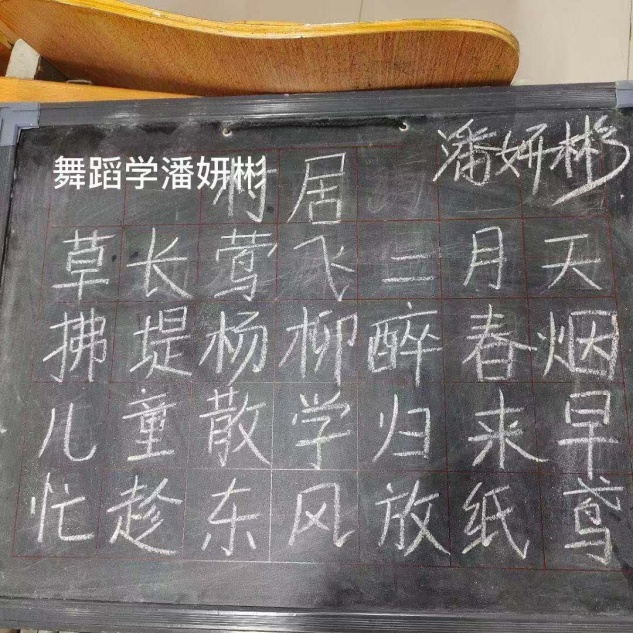 舞蹈学潘妍彬
村居 潘妍彬
草长莺飞二月天
拂堤杨柳醉春烟
儿童散学归来早
忙趁东风放纸鸢